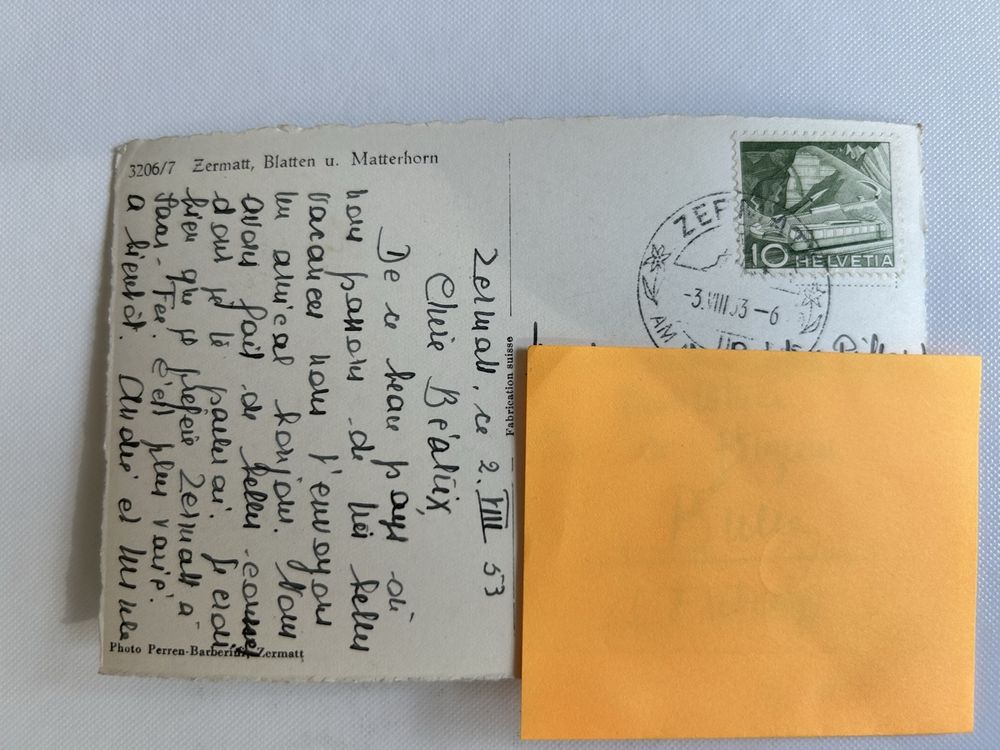 3206/7 Zermatt, Blatten u. Matterhorn
Zermatt, ce 2. VIII 53
Chère Béatrix,
De ce beau pays où
nous passons de très belles
vacances nous t'envoyons
un amical bonjour. Nous
avons fait de belles courses
dont je te parlerai. Je crois
bien que je préfère Zermatt à
Saas-Fee. C'est plus varié.
à bientôt. André et
Photo Perren-Barberini, Zermatt
Fabrication suisse
10 HELVETIA
ZERMATT
-3.VIII 53-6
AM